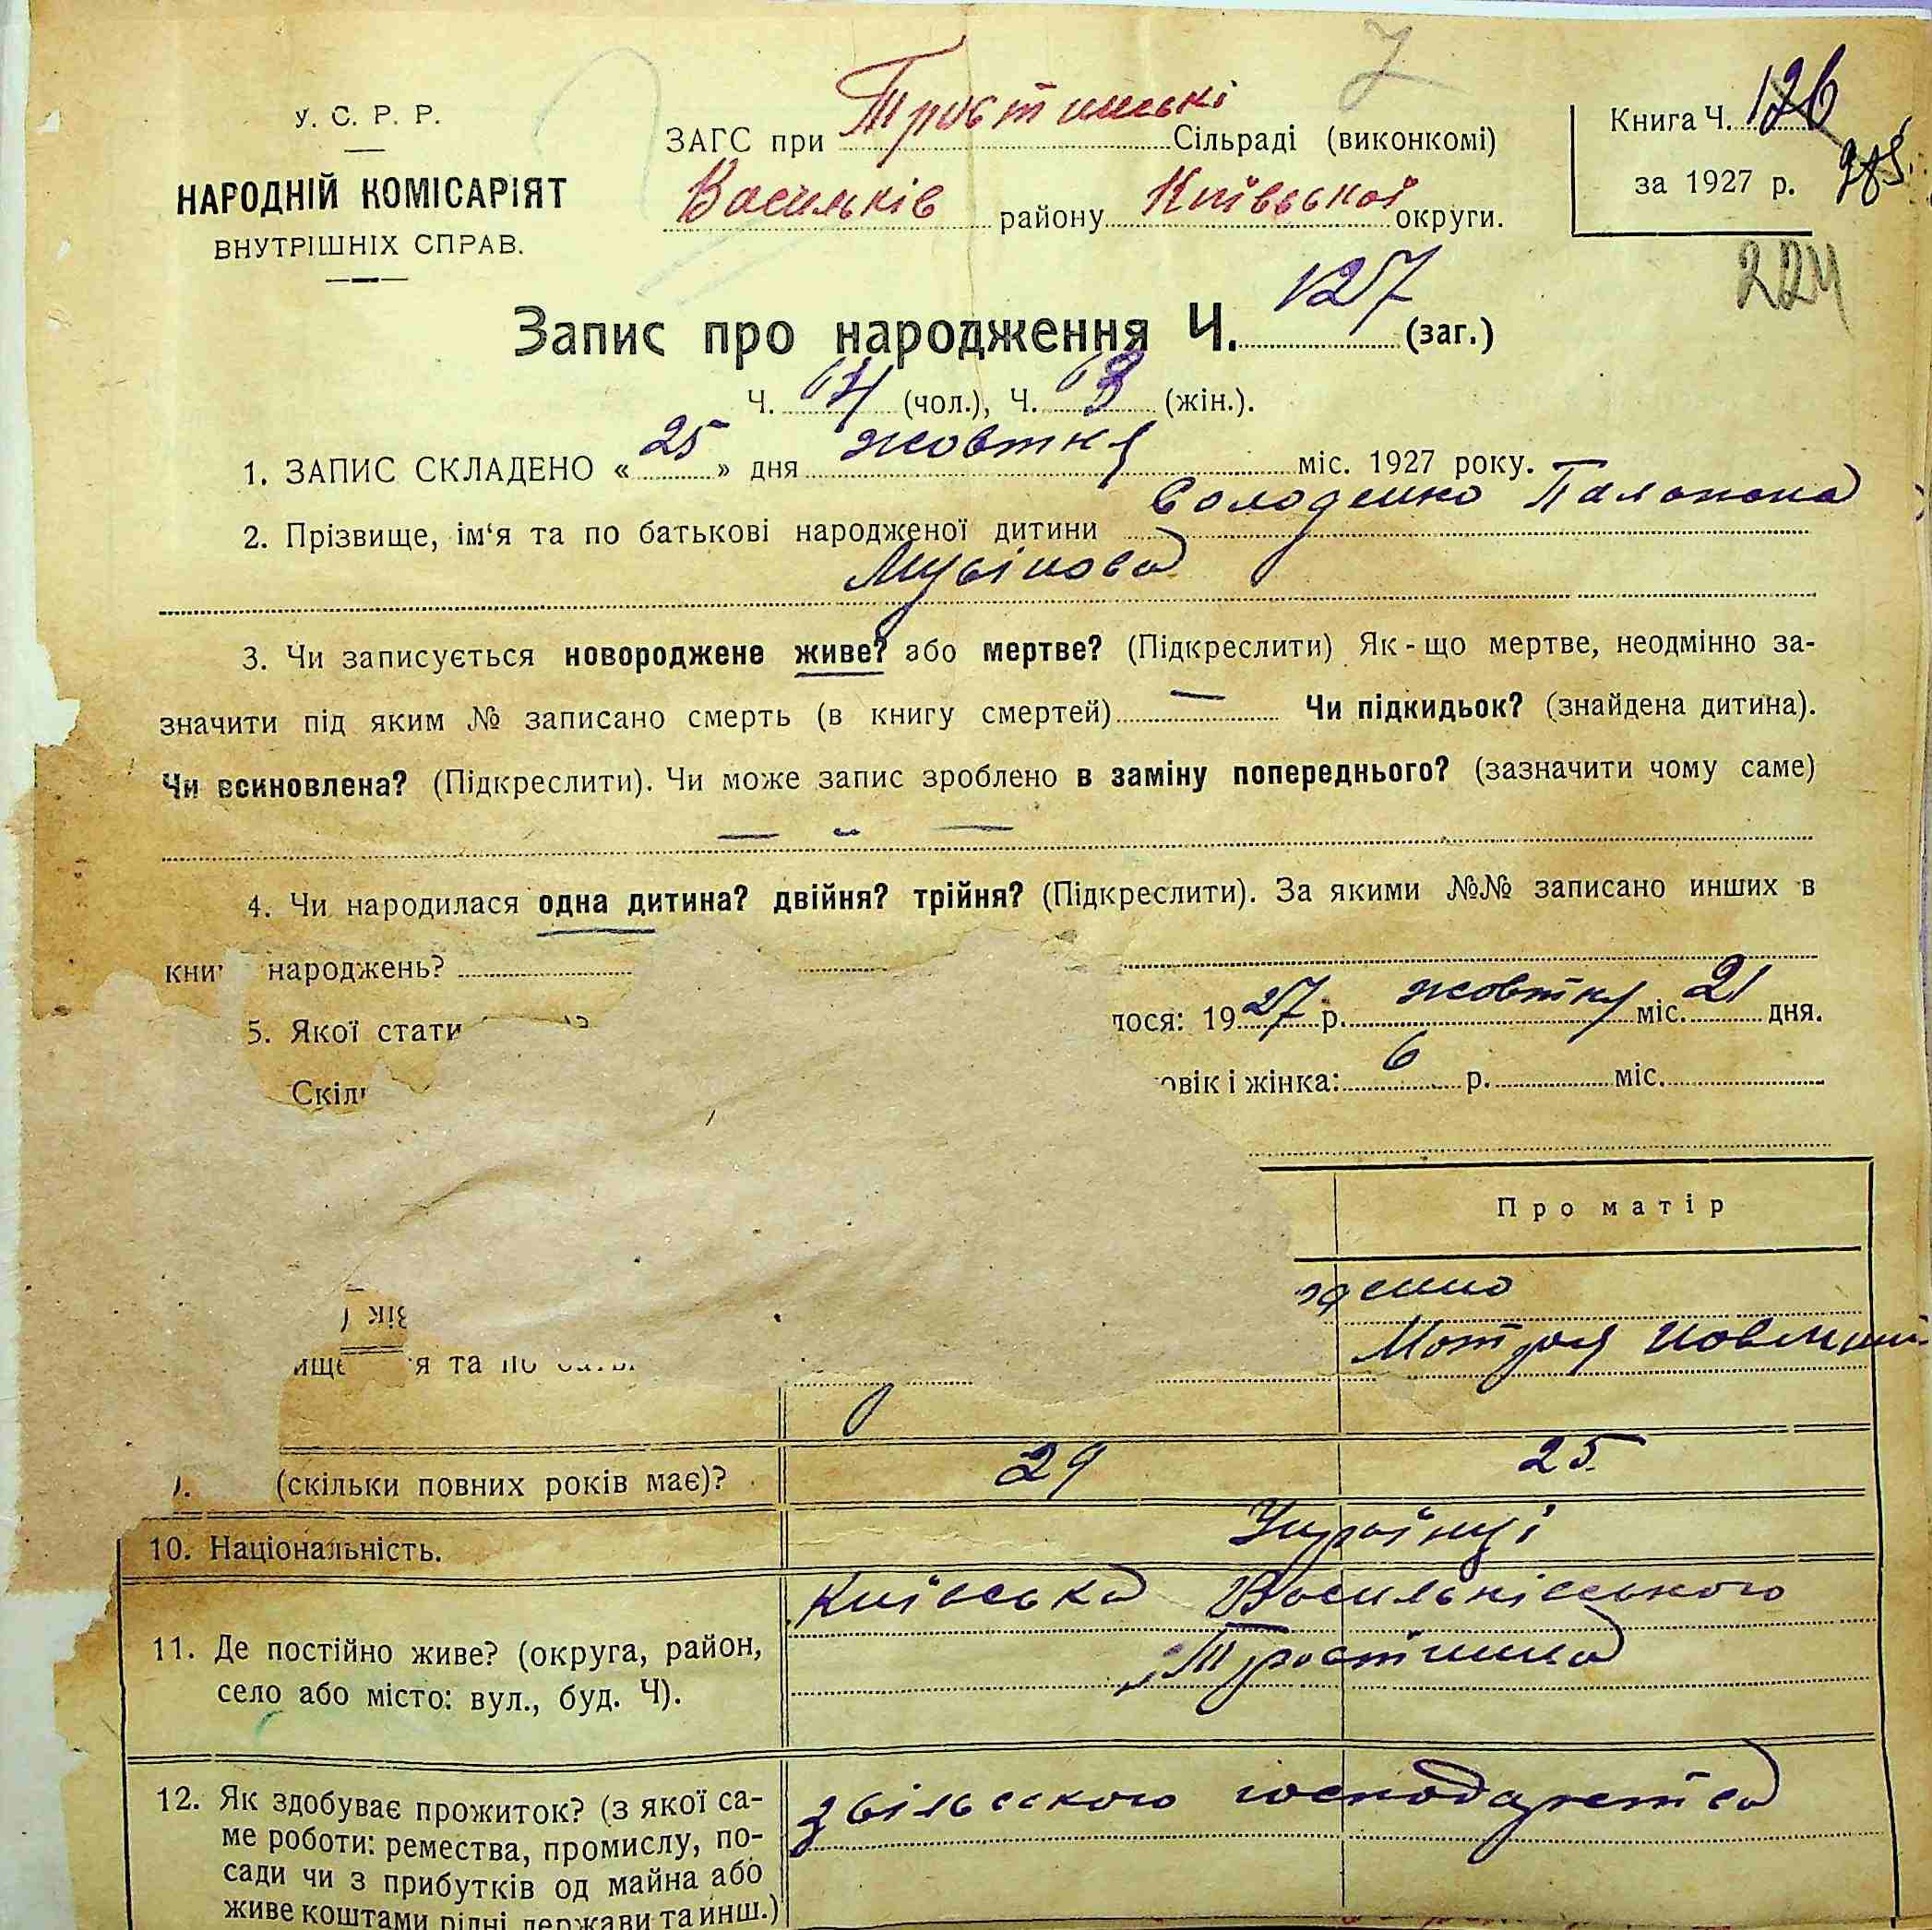 У. С. Р. Р.
НАРОДНІЙ КОМІСАРІЯТ
ВНУТРІШНІХ СПРАВ.
ЗАГС при Тростинські Сільраді (виконкомі)
Васильків району Київської округи.
Книга Ч. 126
за 1927 р.
224
Запис про народження Ч. 127 (заг.)
Ч. (чол.), Ч. 63 (жін.).
1. ЗАПИС СКЛАДЕНО « 25 » дня жовтня міс. 1927 року.
2. Прізвище, ім‘я та по батькові народженої дитини Володенко
3. Чи записується новороджене живе? або мертве? (Підкреслити) Як-що мертве, неодмінно за-
значити під яким № записано смерть (в книгу смертей) — Чи підкидьок? (знайдена дитина).
Чи всиновлена? (Підкреслити). Чи може запис зроблено в заміну попереднього? (зазначити чому саме)
4. Чи народилася одна дитина? двійня? трійня? (Підкреслити). За якими №№ записано инших в
кни народжень?
5. Якої стати лося: 1927 р. жовтня міс. 21 дня.
Скіл овік і жінка: 6 р. міс.
Про матір
денко
Мотря
я та по
(скільки повних років має)? 29 25
10. Національність. Українці
Київська Васильківського
11. Де постійно живе? (округа, район,
село або місто: вул., буд. Ч). Тростинка
12. Як здобуває прожиток? (з якої са- з сільського господарства
ме роботи: ремества, промислу, по-
сади чи з прибутків од майна або
живе коштами рідні, держави та инш.)